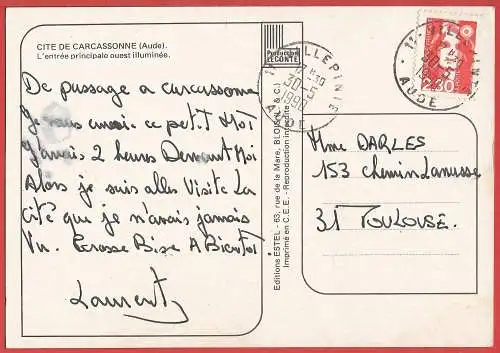 CITE DE CARCASSONNE (Aude).
L'entrée principale ouest illuminée.
De passage a carcassonne
Je vous envoi ce petit Mot
J'avais 2 heures Devant Moi
Alors je suis alles Visite La
Cité que je n'avais jamais
Vu. Grosse Bise A Bientot
Laurent
Production
LECONTE
Editions ESTEL - 63, rue de la Mare, BLOIS (L. & C.)
Imprimé en C.E.E. - Reproduction interdite
11 VILLEPINTE
17 H 30
30-5
1990
AUDE
11 VILLEPINTE
30-5
AUDE
2,30
Mme DARLES
153 chemin Lanusse
31 TOULOUSE.